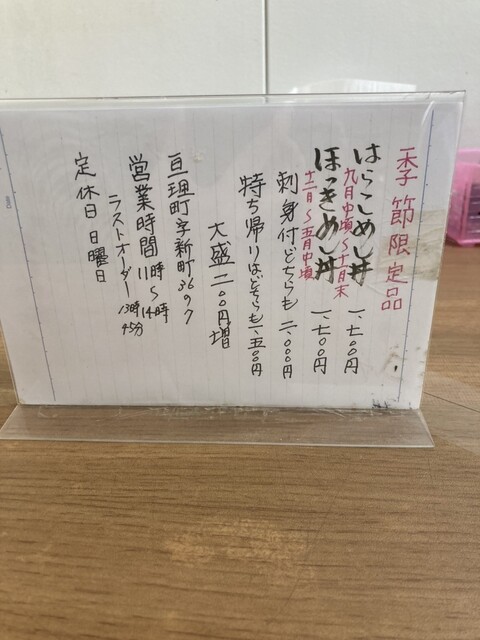 季節限定品
はらこめし丼 一、七〇〇円
九月中頃〜十一月末
ほっきめし丼 一、七〇〇円
十二月〜五月中頃
刺身付どちらも 二、〇〇〇円
持ち帰りはどちらも一、五〇〇円
大盛二〇〇円増
亘理町字新町36の7
営業時間 11時〜14時
ラストオーダー 13時45分
定休日 日曜日